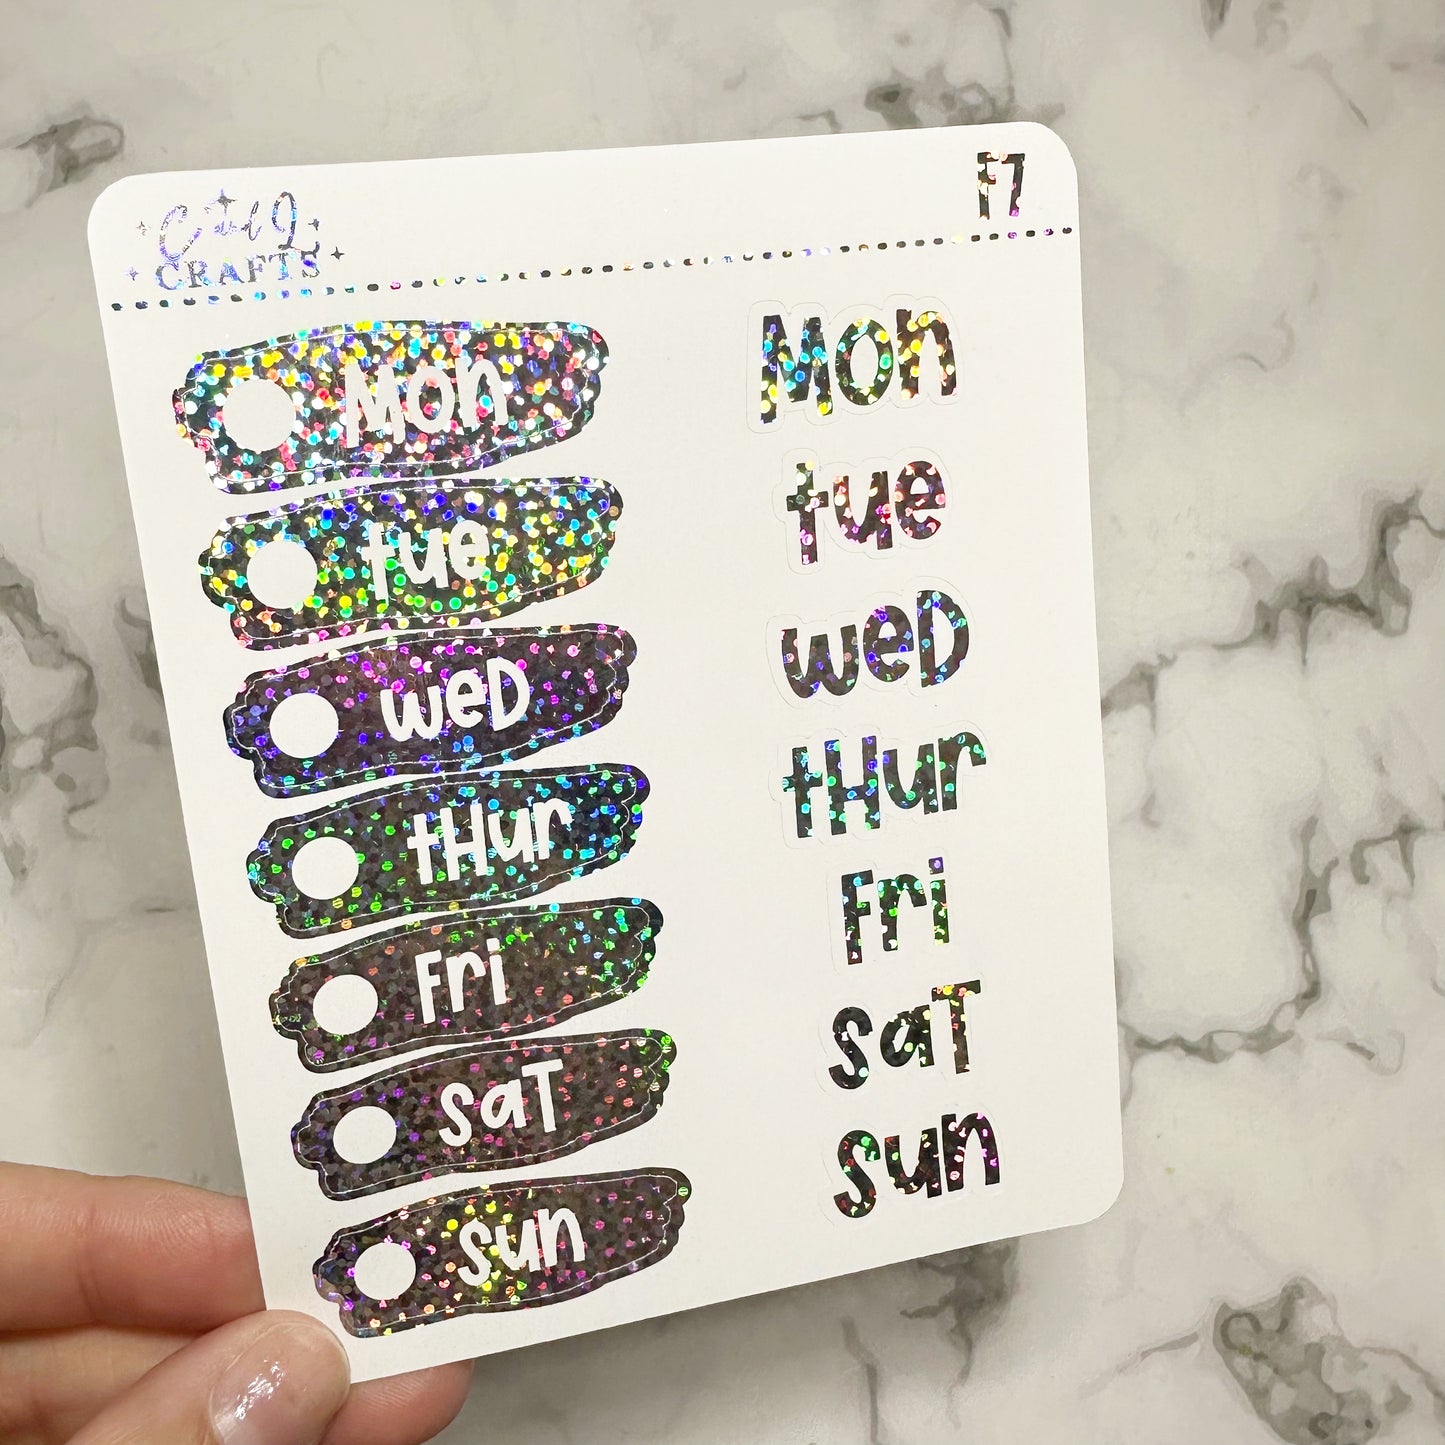 CRAFTS
F7
Mon
tue
weD
tHur
Fri
saT
sun
Mon
tue
weD
tHur
Fri
saT
sun